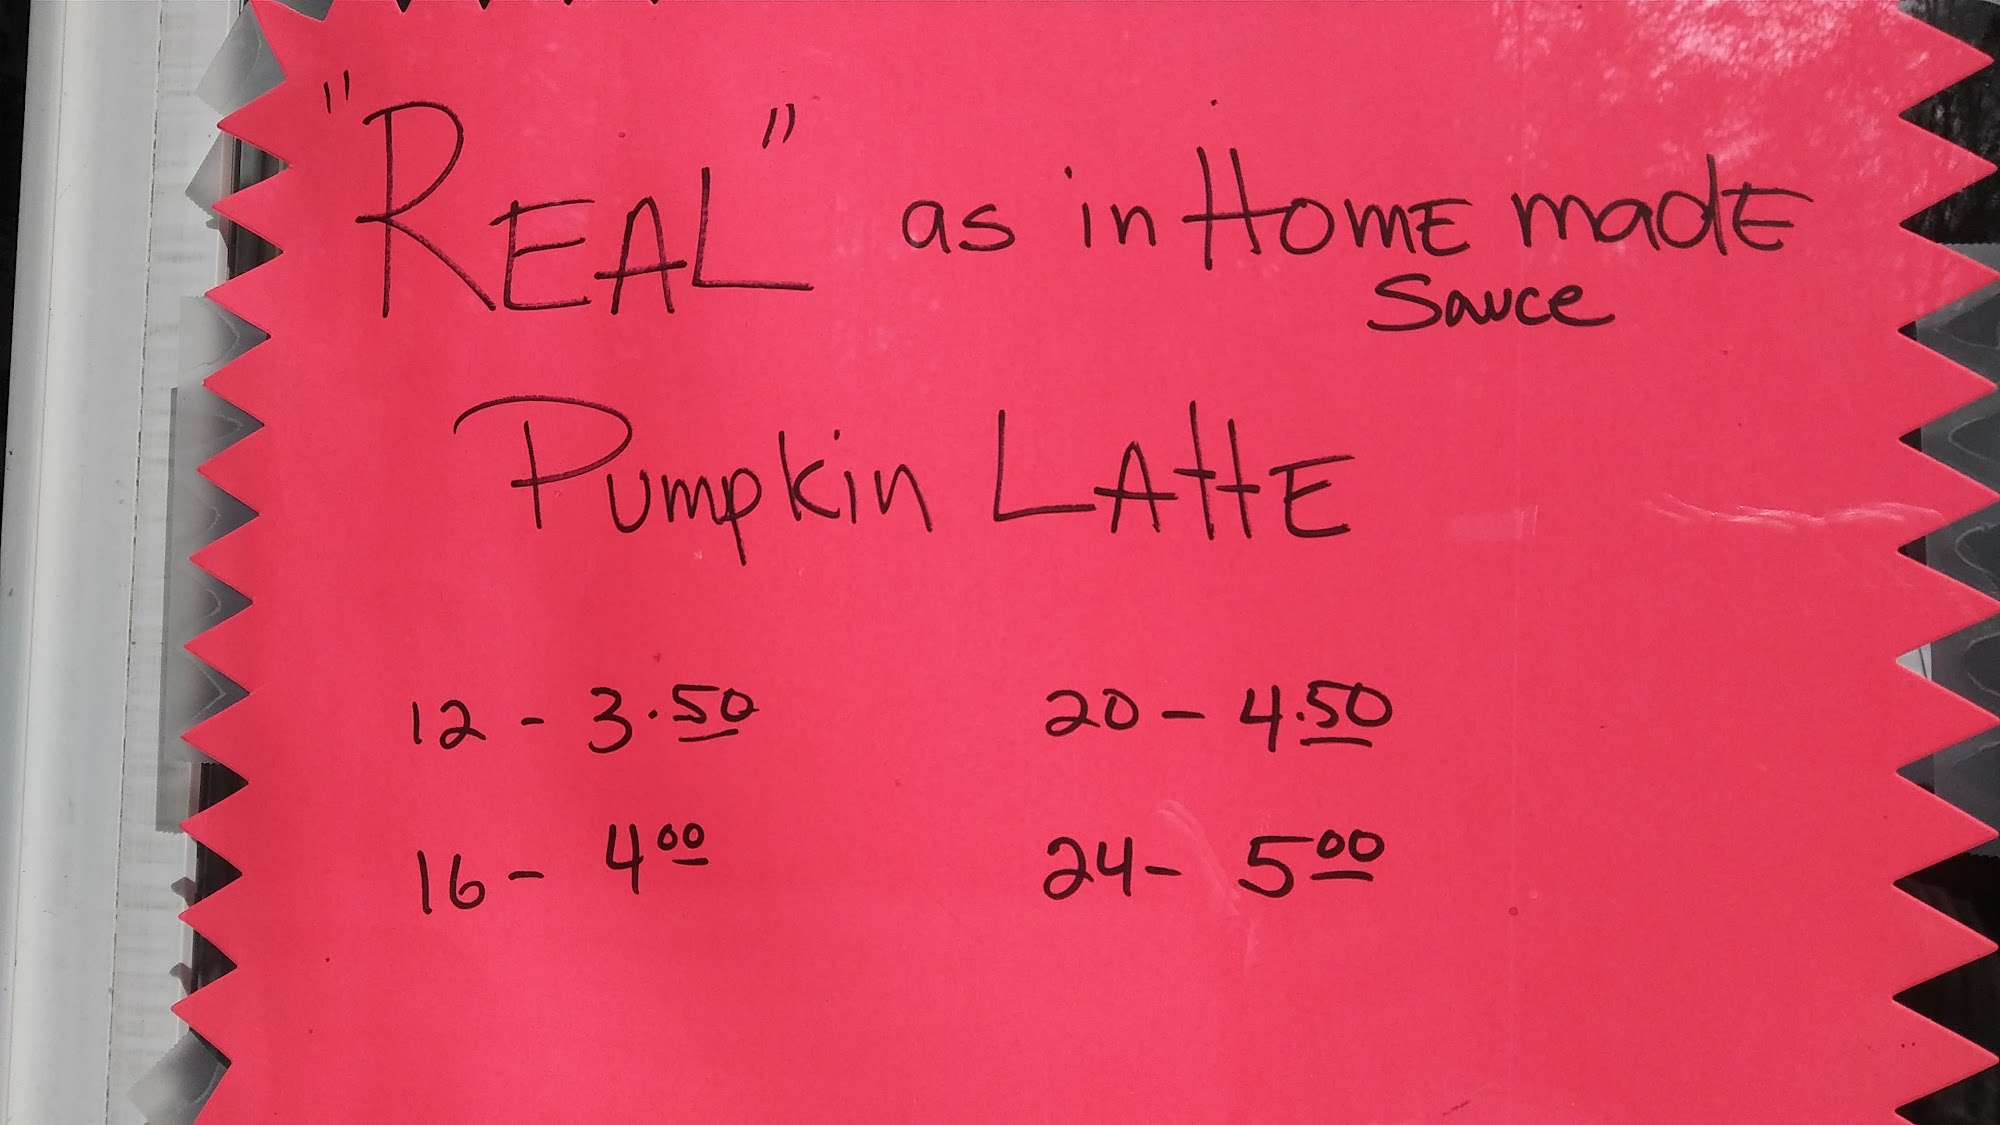 "REAL" as in HOME made
Sauce
Pumpkin LATTE
12 - 3.50 20 - 4.50
16 - 4 00 24 - 5 00